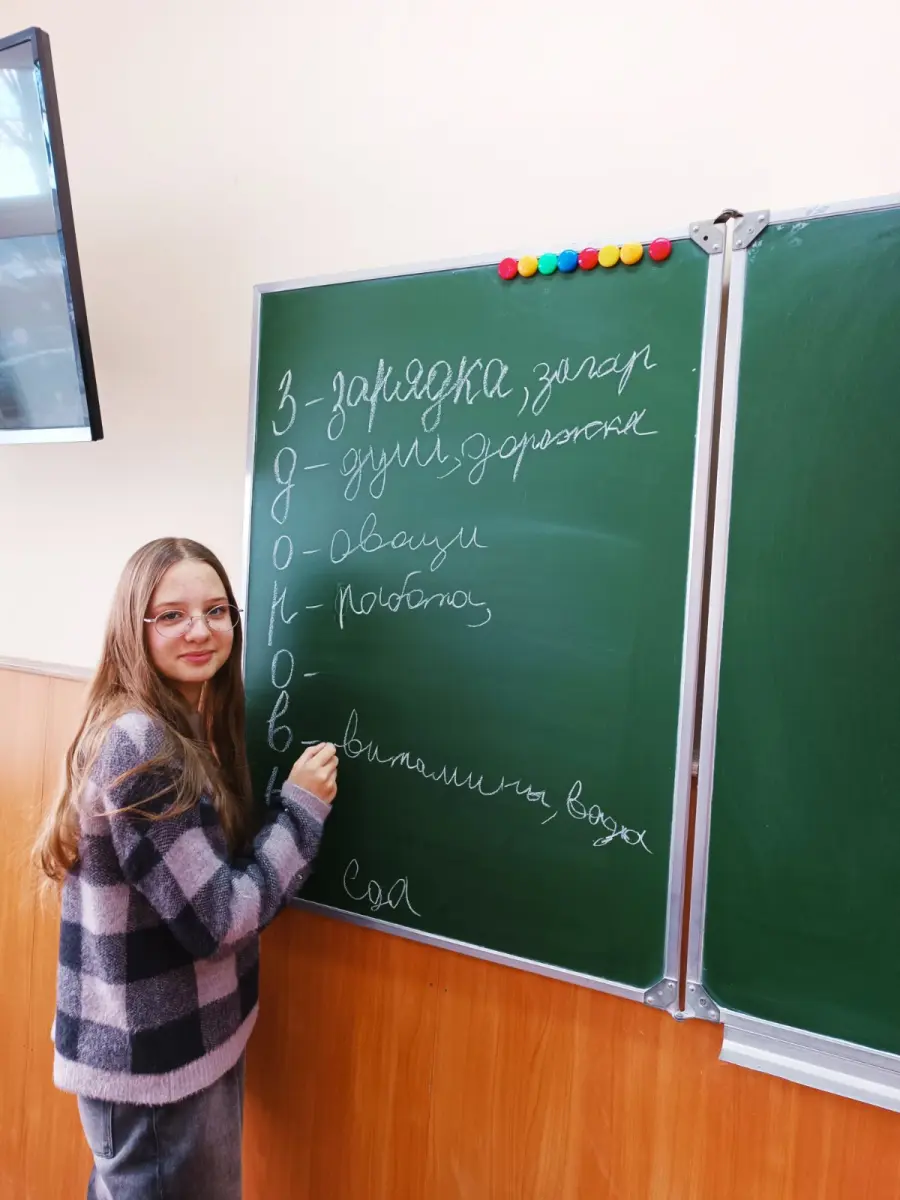 З - зарядка, загар
Д - душ, дорожка
О - овощи
Р - работа,
О -
В - витамины, вода
еда